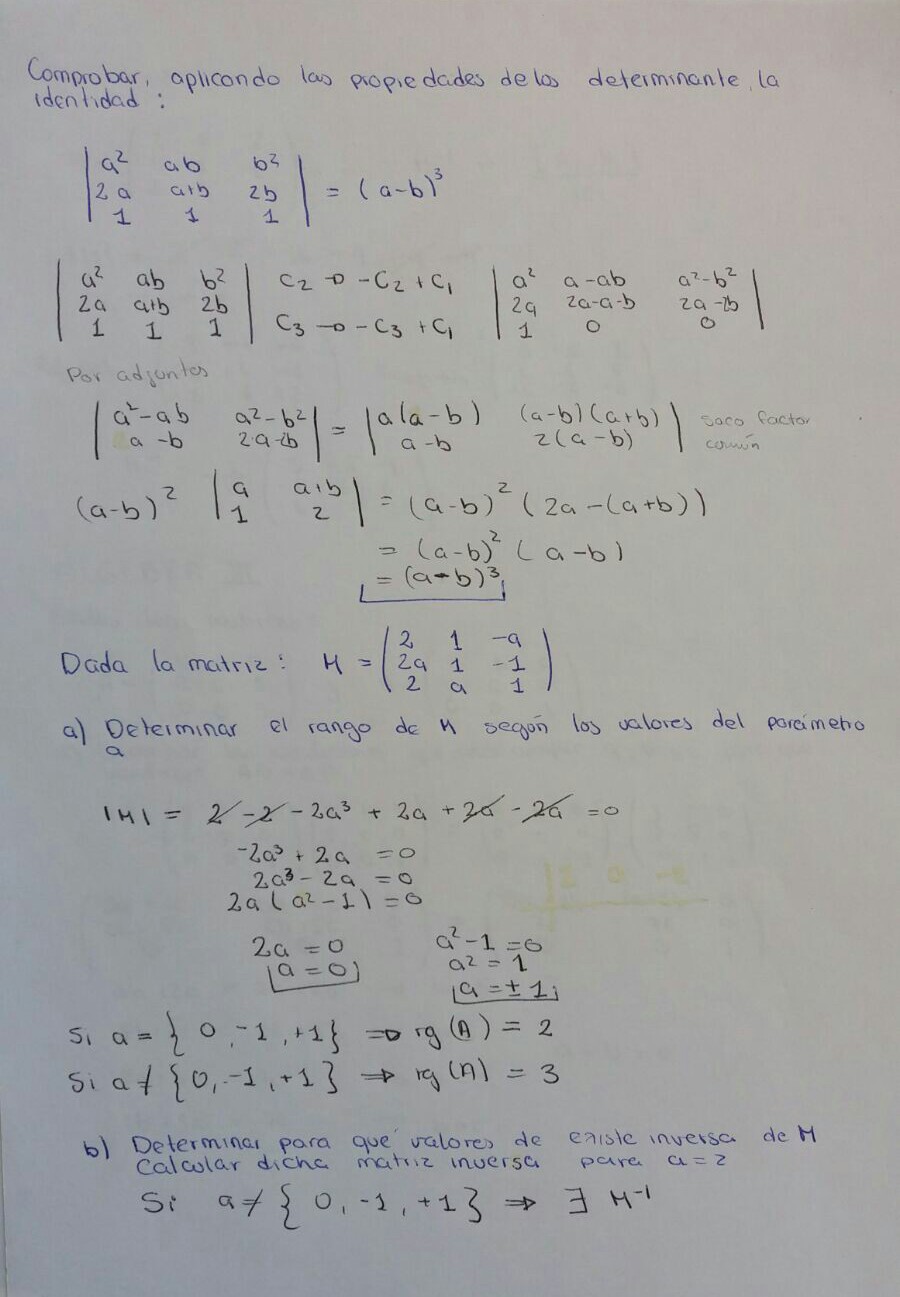 Comprobar, aplicando las propiedades de los determinante, la
identidad :
| a² ab b² |
| 2a a+b 2b | = (a-b)³
| 1 1 1 |
| a² ab b² | C₂ → -C₂ + C₁ | a² a-ab a²-b² |
| 2a a+b 2b | | 2a 2a-a-b 2a-2b |
| 1 1 1 | C₃ → -C₃ + C₁ | 1 0 0 |
Por adjuntos
| a²-ab a²-b² | = | a(a-b) (a-b)(a+b) | saco factor
| a-b 2a-2b | | a-b 2(a-b) | común
(a-b)² | a a+b | = (a-b)² (2a-(a+b))
| 1 2 |
= (a-b)² (a-b)
= (a-b)³
( 2 1 -a )
Dada la matriz : M = ( 2a 1 -1 )
( 2 a 1 )
a) Determinar el rango de M según los valores del parámetro
a
|M| = 2 - 2 - 2a³ + 2a + 2a - 2a = 0
-2a³ + 2a = 0
2a³ - 2a = 0
2a (a² - 1) = 0
2a = 0 a² - 1 = 0
a = 0 a² = 1
a = ± 1
Si a = { 0, -1, +1} ⇒ rg (A) = 2
Si a ≠ {0, -1, +1 } ⇒ rg (A) = 3
b) Determinar para que valores de existe inversa de M
Calcular dicha matriz inversa para a = 2
Si a ≠ { 0, -1, +1} ⇒ ∃ M⁻¹